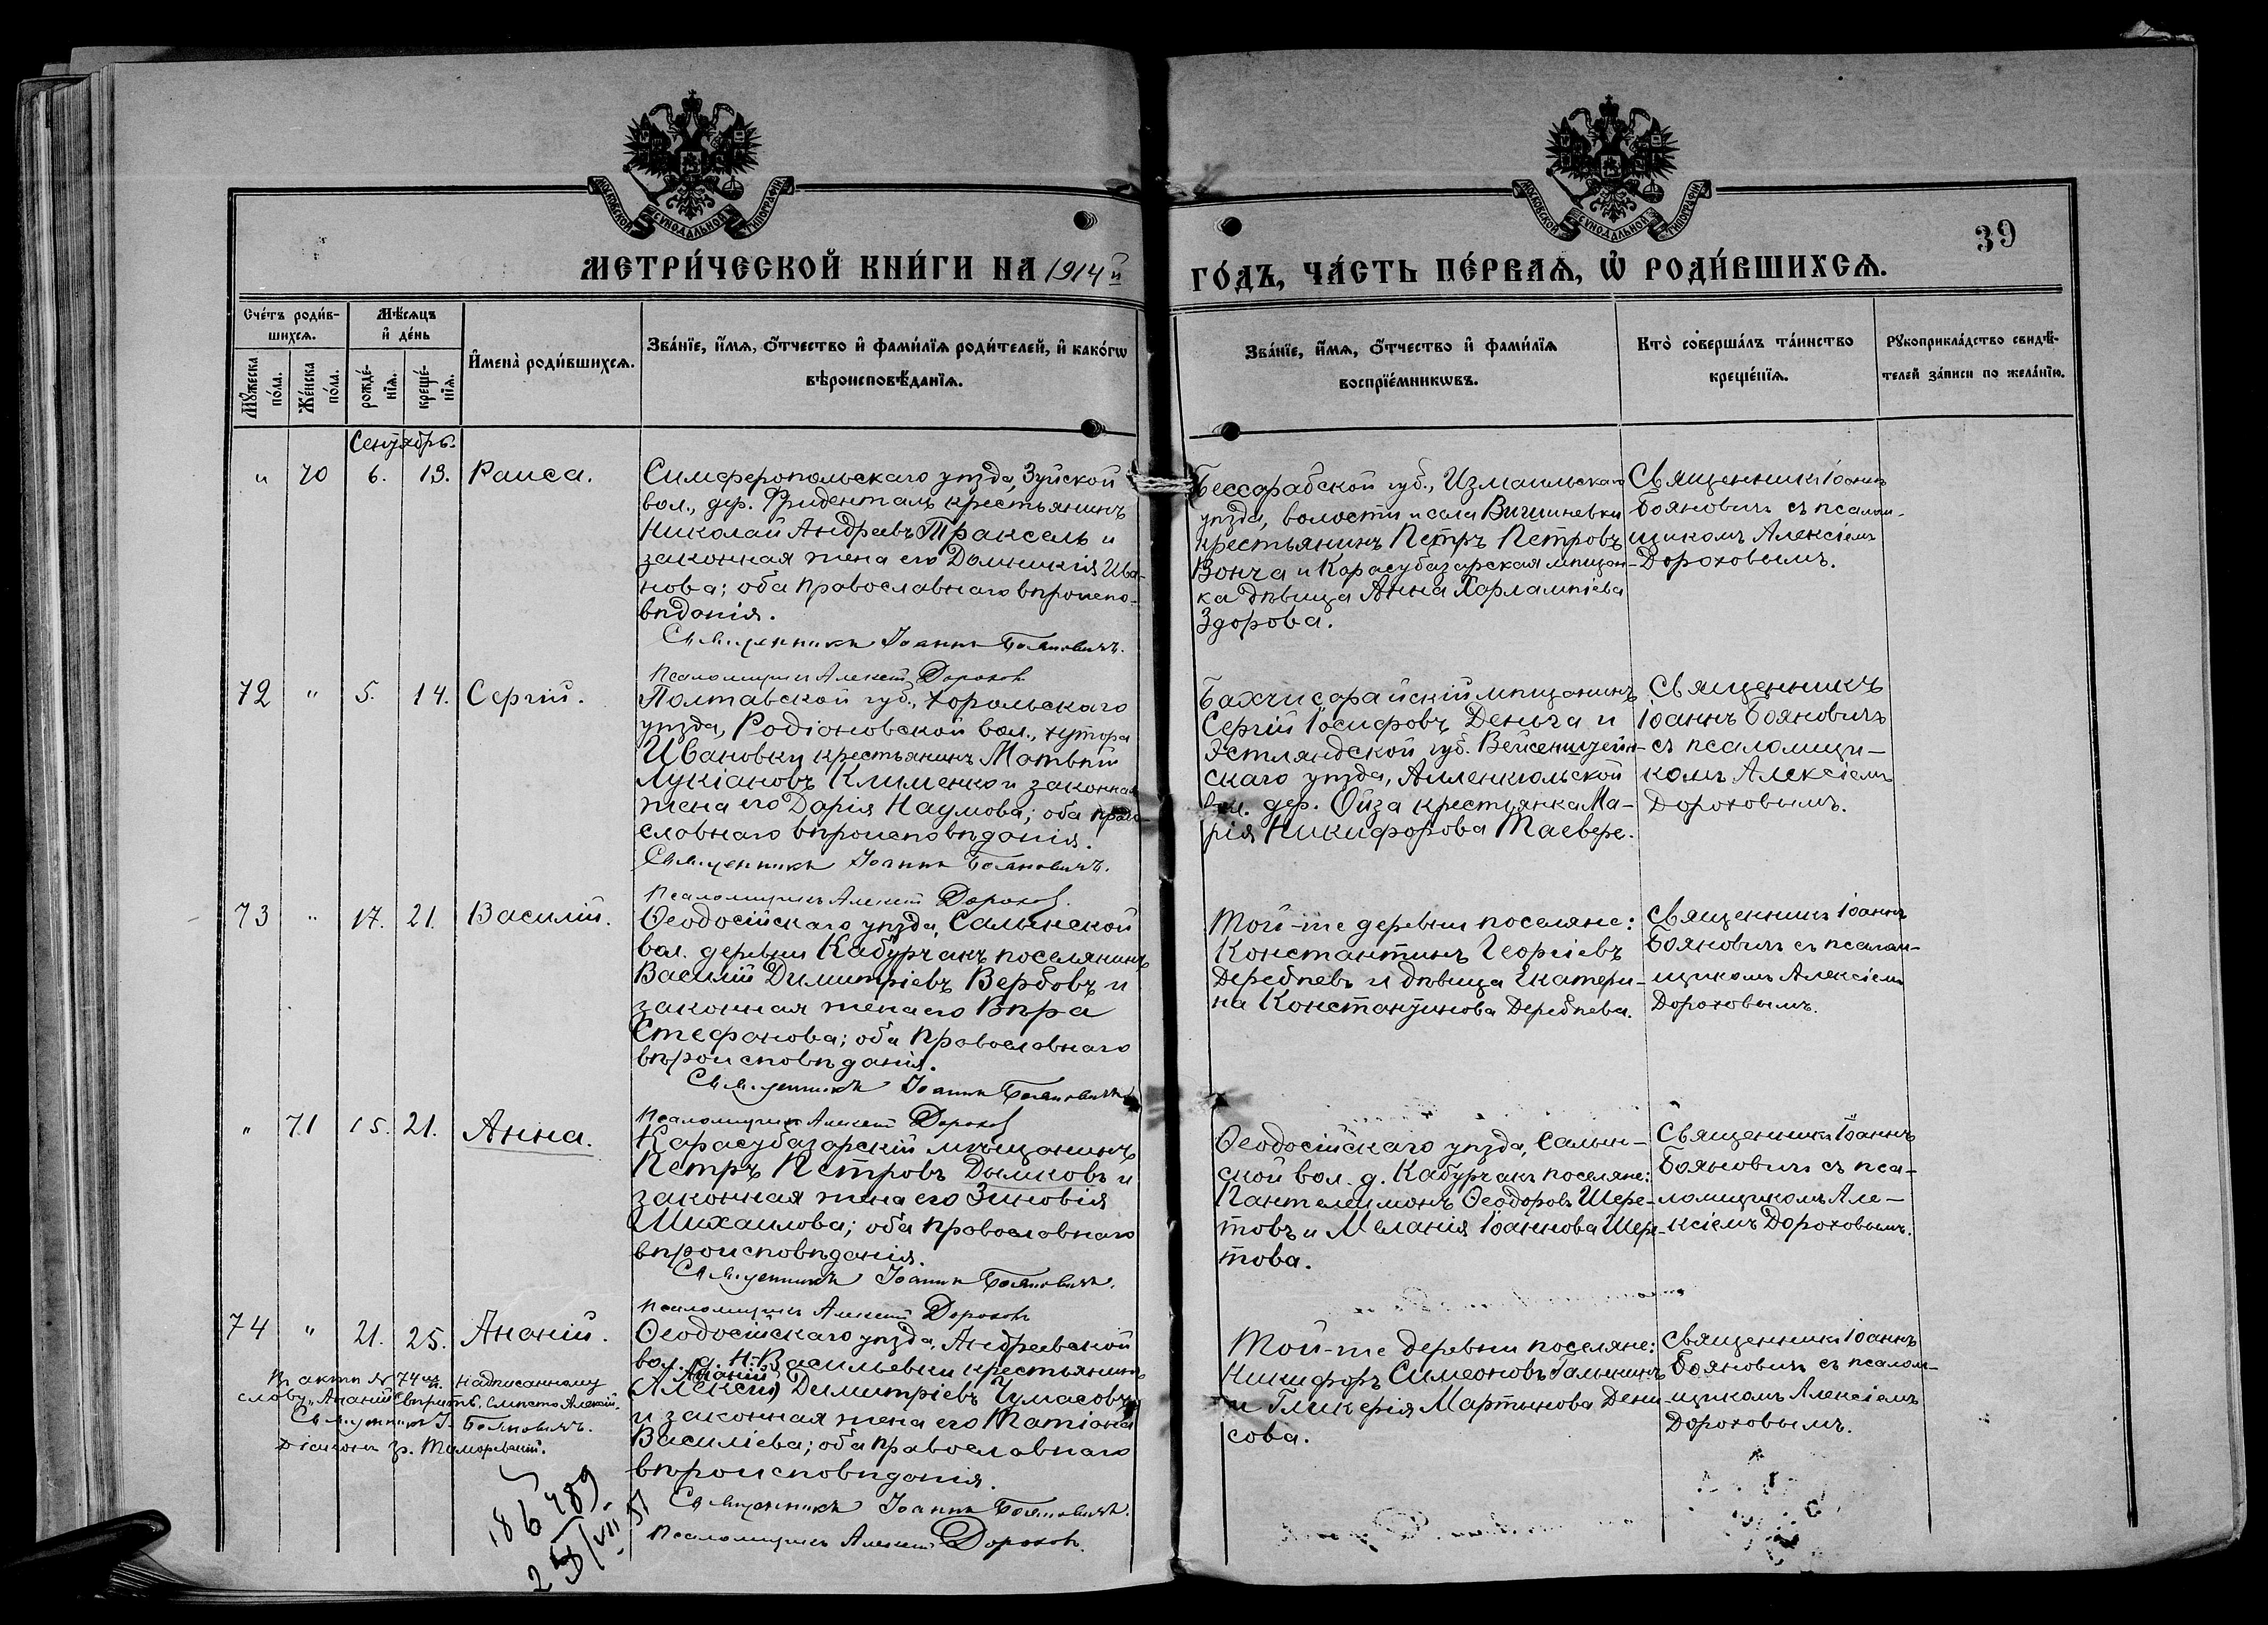 МОСКОВСКОЙ СУНОДАЛЬНОЙ ТИПОГРАФІИ
МОСКОВСКОЙ СУНОДАЛЬНОЙ ТИПОГРАФІИ
39
МЕТРИ́ЧЕСКОЙ КНИ́ГИ НА 1914й
ГО́ДЪ, ЧА́СТЬ ПЕ́РВАѦ, Ѡ҆ РОДИ́ВШИХСѦ.
Сче́тъ роди́в-
шихсѧ.
Мꙋ́жеска по́ла.
Же́нска по́ла.
Мѣ́сѧцъ
и҆ де́нь
рожде́-
нїѧ.
креще́-
нїѧ.
И҆мена̀ роди́вшихсѧ.
Зва́нїе, и҆́мѧ, ѻ҆́тчество и҆ фами́лїѧ роди́телей, и҆ како́гѡ
вѣроисповѣ́данїѧ.
Зва́нїе, и҆́мѧ, ѻ҆́тчество и҆ фами́лїѧ
воспрїе́мникѡвъ.
Кто̀ соверша́лъ та́инство
креще́нїѧ.
Рꙋкоприкла́дство свидѣ́-
телей за́писи по жела́нїю.
Сентябрь.
" 70 6. 13. Раиса.
Симферопольскаго уѣзда, Зуйской
вол., дер. Фриденталь крестьянинъ
Николай Андреевъ Траксель и
законная жена его Домникія Ива-
нова; оба православнаго вѣроиспо-
вѣданія.
Священникъ Іоаннъ Бояновичъ.
Псаломщикъ Алексій Дороховъ
Бессарабской губ., Измаильскаго
уѣзда, волости и села Вишневки
крестьянинъ Петръ Петровъ
Вонча и Карасубазарская мѣщан-
ка дѣвица Анна Харлампіева
Здорова.
Священникъ Іоаннъ
Бояновичъ съ псалом-
щикомъ Алексіемъ
Дороховымъ.
72 " 5. 14. Сергій.
Полтавской губ., Хорольскаго
уѣзда, Родіоновской вол., хутора
Ивановки крестьянинъ Матвѣй
Лукіановъ Клименко и законная
жена его Дарія Наумова; оба право
славнаго вѣроисповѣданія.
Священникъ Іоаннъ Бояновичъ.
Псаломщикъ Алексій Дороховъ.
Бахчисарайскій мѣщанинъ
Сергій Іосифовъ Деньга и
Эстляндской губ. Вейсенштейн-
скаго уѣзда, Алленкюльской
вол. дер. Ойза крестьянка Ма-
рія Никифорова Таевере.
Священникъ
Іоаннъ Бояновичъ
съ псаломщи-
комъ Алексіемъ
Дороховымъ.
73 " 17. 21. Василій.
Ѳеодосійскаго уѣзда, Салынской
вол. деревни Кабурчакъ поселянинъ
Василій Димитріевъ Вербовъ и
законная жена его Вѣра
Стефанова; оба православнаго
вѣроисповѣданія.
Священникъ Іоаннъ Бояновичъ
Псаломщикъ Алексій Дороховъ
Той-же деревни поселяне:
Константинъ Георгіевъ
Деребѣевъ и дѣвица Екатери-
на Константинова Деребѣева.
Священникъ Іоаннъ
Бояновичъ съ псалом-
щикомъ Алексіемъ
Дороховымъ.
" 71 15. 21. Анна.
Карасубазарскій мѣщанинъ
Петръ Петровъ Дымковъ и
законная жена его Зиновія
Михаилова; оба православнаго
вѣроисповѣданія.
Священникъ Іоаннъ Бояновичъ.
Псаломщикъ Алексій Дороховъ
Ѳеодосійскаго уѣзда, Салын-
ской вол. д. Кабурчакъ поселяне:
Пантелеимонъ Ѳеодоровъ Шере-
товъ и Меланія Іоаннова Шере-
това.
Священникъ Іоаннъ
Бояновичъ съ пса-
ломщикомъ Але-
ксіемъ Дороховымъ.
74 " 21. 25. Ананій.
Ѳеодосійскаго уѣзда, Андреевской
вол. д. Н.-Васильевки крестьянинъ
Ананій
Алексій Димитріевъ Чумасовъ
и законная жена его Татіана
Василіева; оба православнаго
вѣроисповѣданія.
Священникъ Іоаннъ Бояновичъ.
Псаломщикъ Алексій Дороховъ.
Той-же деревни поселяне:
Никифоръ Симеоновъ Галкинъ
и Гликерія Мартынова Дени-
сова.
Священникъ Іоаннъ
Бояновичъ съ псалом-
щикомъ Алексіемъ
Дороховымъ.
Въ актѣ № 74 м. п. надписанному
слову "Ананій" вѣрить, вмѣсто Алексій.
Священникъ І. Бояновичъ.
186489